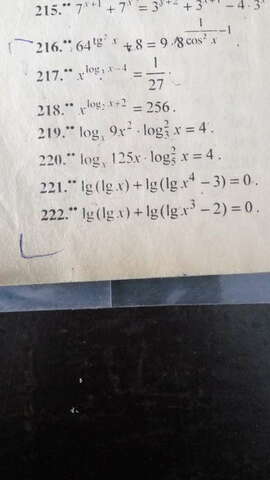 215.** 7^{x+1} + 7^x = 3^{x+2} + 3^{x+1} − 4 · 3^x
216.** 64^{tg² x} + 8 = 9 · 8^{\frac{1}{cos² x} − 1}
217.** x^{log_3 x − 4} = \frac{1}{27} .
218.** x^{log_2 x + 2} = 256 .
219.** log_x 9x² · log_3^2 x = 4 .
220.** log_x 125x · log_5^2 x = 4 .
221.** lg(lg x) + lg(lg x⁴ − 3) = 0 .
222.** lg(lg x) + lg(lg x³ − 2) = 0 .